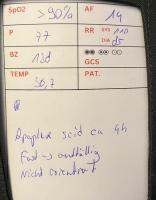 SpO2 >90% AF 14
P 77 RR SYS 110 DIA 65
BZ 138
GCS
TEMP 36,7 PAT.
Apoplex seid ca 4h
Fast unauffällig
Nicht orientiert